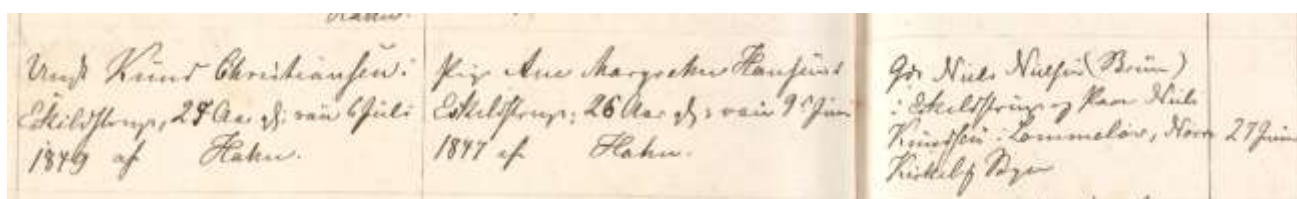 Hahn.
Ungk. Knud Christiansen i
Eskildstrup, 24 Aar g. vacc. 6 Juli
1849 af Hahn.
Pige Ane Margrethe Hansens
Eskildstrup, 26 Aar g. vacc. 9 Juni
1847 af Hahn.
Gdr. Niels Nielsen (Bruun)
i Eskildstrup og Niels
Knudsen i Nørre
Kirkeby Sogn
27 Juni